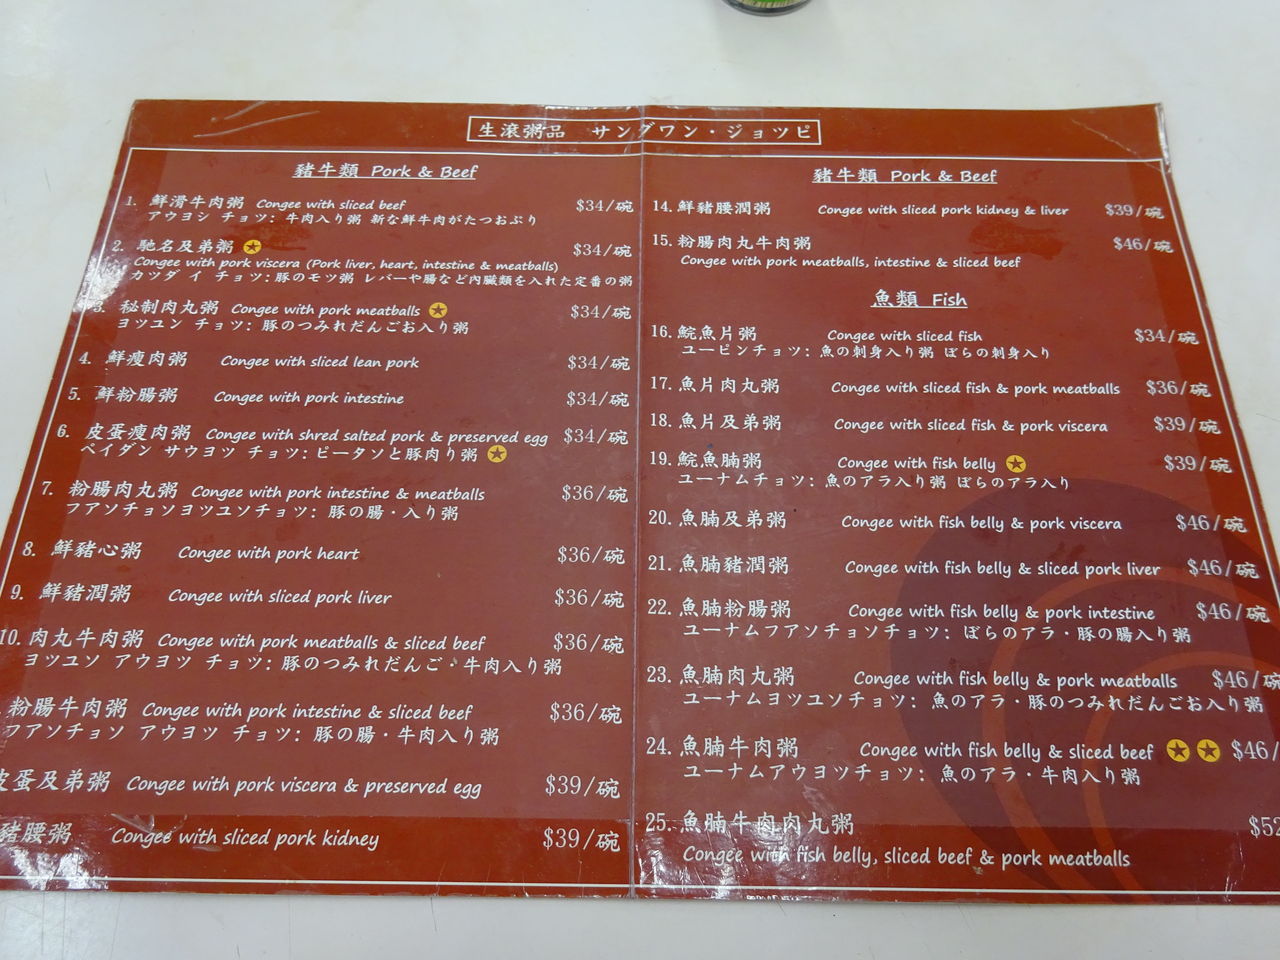 生滾粥品 サングワン・ジョツピ
豬牛類 Pork & Beef
1. 鮮滑牛肉粥 Congee with sliced beef $34/碗
アウヨシ チョツ: 牛肉入り粥 新な鮮牛肉がたつおぷり
2. 馳名及弟粥 $34/碗
Congee with pork viscera (Pork liver, heart, intestine & meatballs)
カツダ イ チョツ: 豚のモツ粥 レバーや腸など内臓類を入れた定番の粥
3. 秘制肉丸粥 Congee with pork meatballs $34/碗
ヨツユン チョツ: 豚のつみれだんごお入り粥
4. 鮮瘦肉粥 Congee with sliced lean pork $34/碗
5. 鮮粉腸粥 Congee with pork intestine $34/碗
6. 皮蛋瘦肉粥 Congee with shred salted pork & preserved egg $34/碗
ペイダン サウヨツ チョツ: ピータソと豚肉り粥
7. 粉腸肉丸粥 Congee with pork intestine & meatballs $36/碗
フアソチョソヨツユソチョツ: 豚の腸・入り粥
8. 鮮豬心粥 Congee with pork heart $36/碗
9. 鮮豬潤粥 Congee with sliced pork liver $36/碗
10. 肉丸牛肉粥 Congee with pork meatballs & sliced beef $36/碗
ヨツユソ アウヨツ チョツ: 豚のつみれだんご・牛肉入り粥
粉腸牛肉粥 Congee with pork intestine & sliced beef $36/碗
フアソチョソ アウヨツ チョツ: 豚の腸・牛肉入り粥
皮蛋及弟粥 Congee with pork viscera & preserved egg $39/碗
豬腰粥 Congee with sliced pork kidney $39/碗
豬牛類 Pork & Beef
14. 鮮豬腰潤粥 Congee with sliced pork kidney & liver $39/碗
15. 粉腸肉丸牛肉粥 $46/碗
Congee with pork meatballs, intestine & sliced beef
魚類 Fish
16. 鯇魚片粥 Congee with sliced fish $34/碗
ユーピンチョツ: 魚の刺身入り粥 ぼらの刺身入り
17. 魚片肉丸粥 Congee with sliced fish & pork meatballs $36/碗
18. 魚片及弟粥 Congee with sliced fish & pork viscera $39/碗
19. 鯇魚腩粥 Congee with fish belly $39/碗
ユーナムチョツ: 魚のアラ入り粥 ぼらのアラ入り
20. 魚腩及弟粥 Congee with fish belly & pork viscera $46/碗
21. 魚腩豬潤粥 Congee with fish belly & sliced pork liver $46/碗
22. 魚腩粉腸粥 Congee with fish belly & pork intestine $46/碗
ユーナムフアソチョソチョツ: ぼらのアラ・豚の腸入り粥
23. 魚腩肉丸粥 Congee with fish belly & pork meatballs $46/碗
ユーナムヨツユソチョツ: 魚のアラ・豚のつみれだんごお入り粥
24. 魚腩牛肉粥 Congee with fish belly & sliced beef $46/
ユーナムアウヨツチョツ: 魚のアラ・牛肉入り粥
25. 魚腩牛肉肉丸粥 $52
Congee with fish belly, sliced beef & pork meatballs